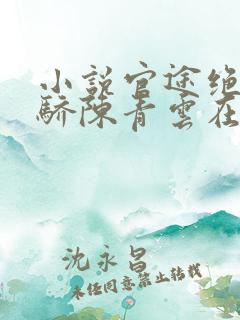 小说官途绝
骄陈青云在
沈永昌
未经同意禁止转载